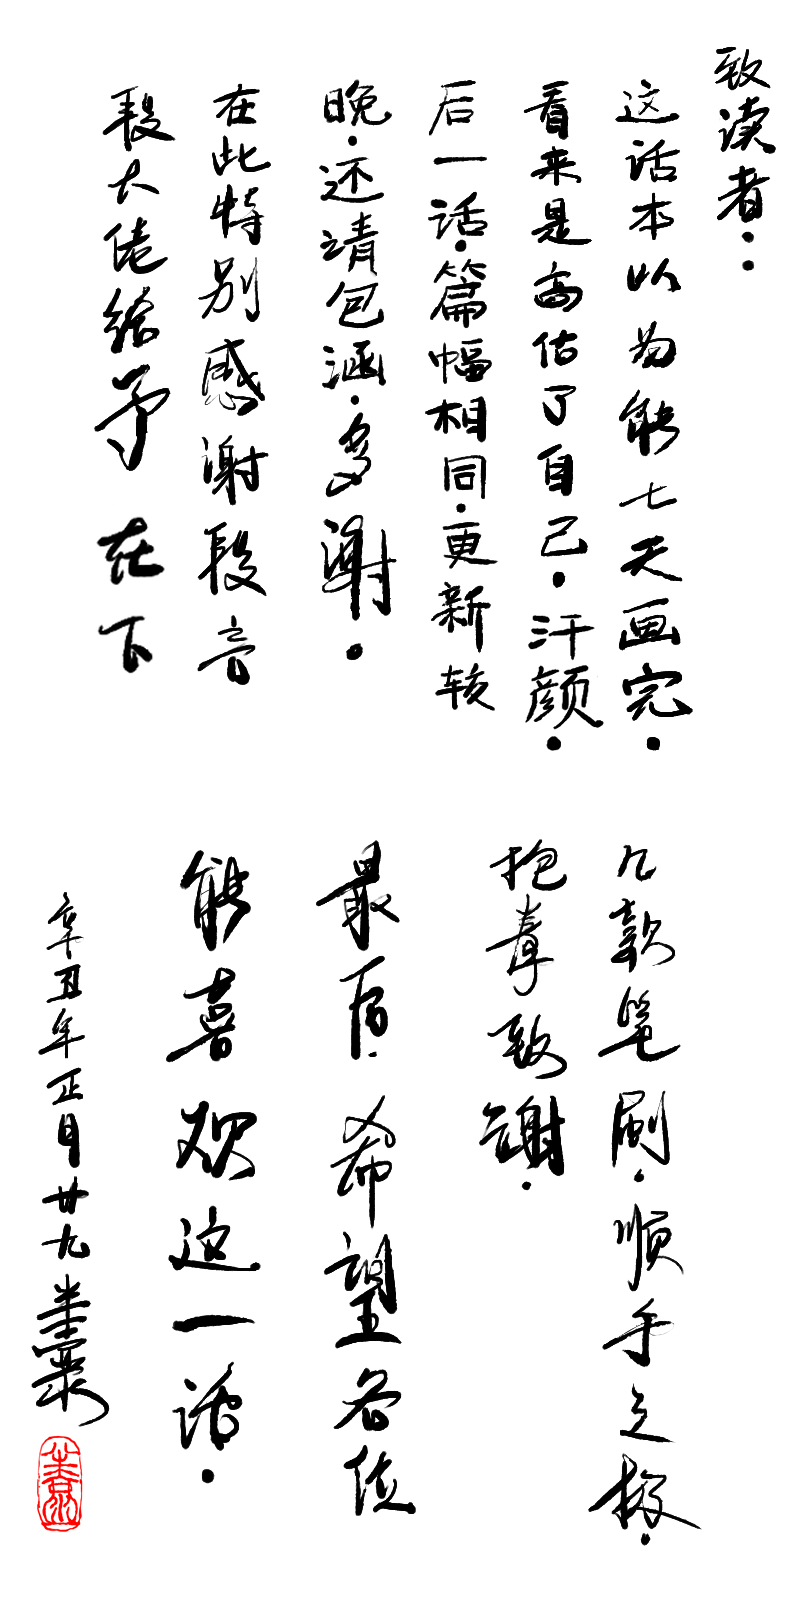 致读者：
这话本以为能七天画完.
看来是高估了自己.汗颜.
后一话.篇幅相同.更新较
晚.还请包涵.多谢.
在此特别感谢段音
段大佬给予在下
几款笔刷.顺手之极.
抱拳致谢.
最后.希望各位
能喜欢这一话.
辛丑年正月廿九